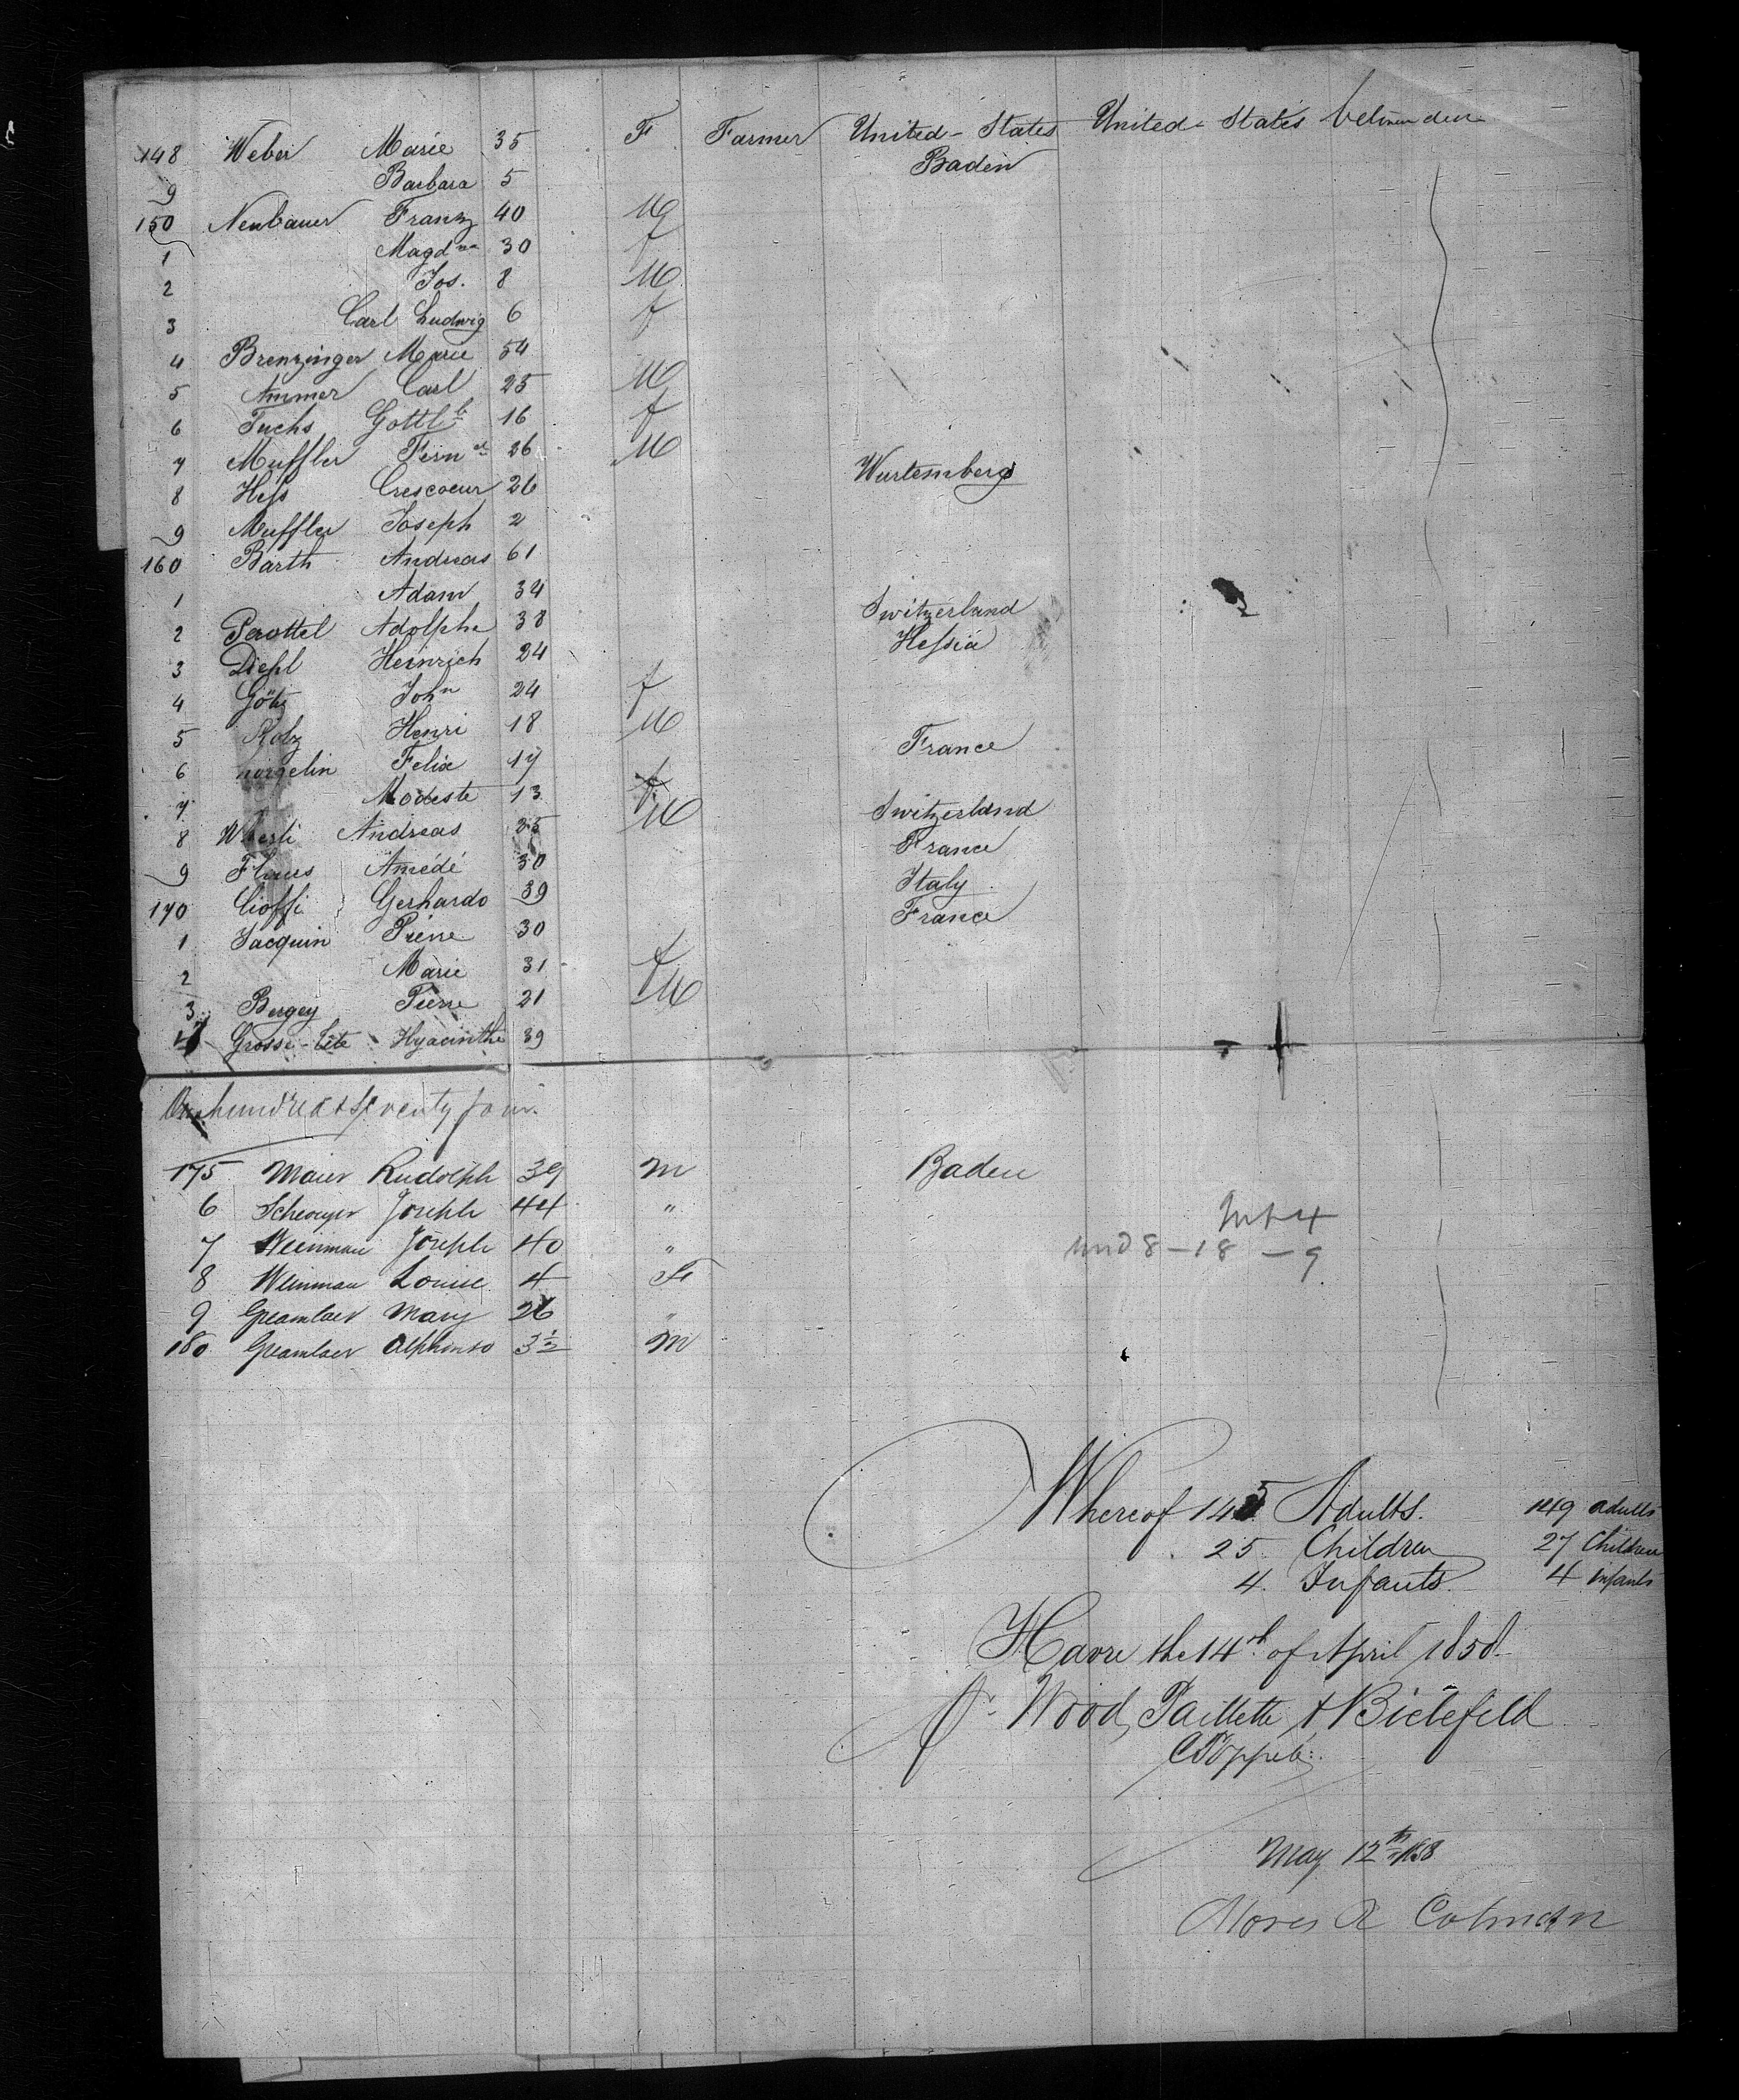 148 Weber Marie 35 F Farmer United-States United-States between decks
9 Barbara 5 Baden
150 Neubauer Franz 40 M
1 Magdna 30 f
2 Jos. 8 M
3 Carl Ludwig 6
4 Brenzinger Marie 54 f
5 Ammer Carl 25 M
6 Fuchs Gottlb 16 f
7 Muffler Fernd 26 M
8 Hess Crescoeur 26 Wurtemberg
9 Muffler Joseph 2
160 Barth Andreas 61
1 Adam 34
2 Perottel Adolphe 38 Switzerland
3 Diehl Heinrich 24 Hessia
4 Götz John 24
5 Henri 18 M
6 Felix 17 France
7 Modeste 13 f
8 Andreas 25 M Switzerland
9 Amédé 30 France
170 Cioffi Gerhardo 39 Italy
1 Jacquin Pierre 30 France
2 Marie 31 f
3 Bergey Pierre 21 M
4 Grosse-tête Hyacinthe 39
One hundred & seventy four
175 Maier Rudolph 39 M Baden
6 Joseph 44 "
7 Weinman Joseph 40 "
8 Weinman Louise 4 F
9 Mary 26 "
180 Alphonso 3½ M
Inf 4
und 8 - 18 - 9
Whereof 145 Adults. 149 adults
25 Children 27 Children
4. Infants. 4 infants
Havre the 14th of April 1858
pr Wood, Paillette & Bielefeld
May 12th 1858
Moses R Colman